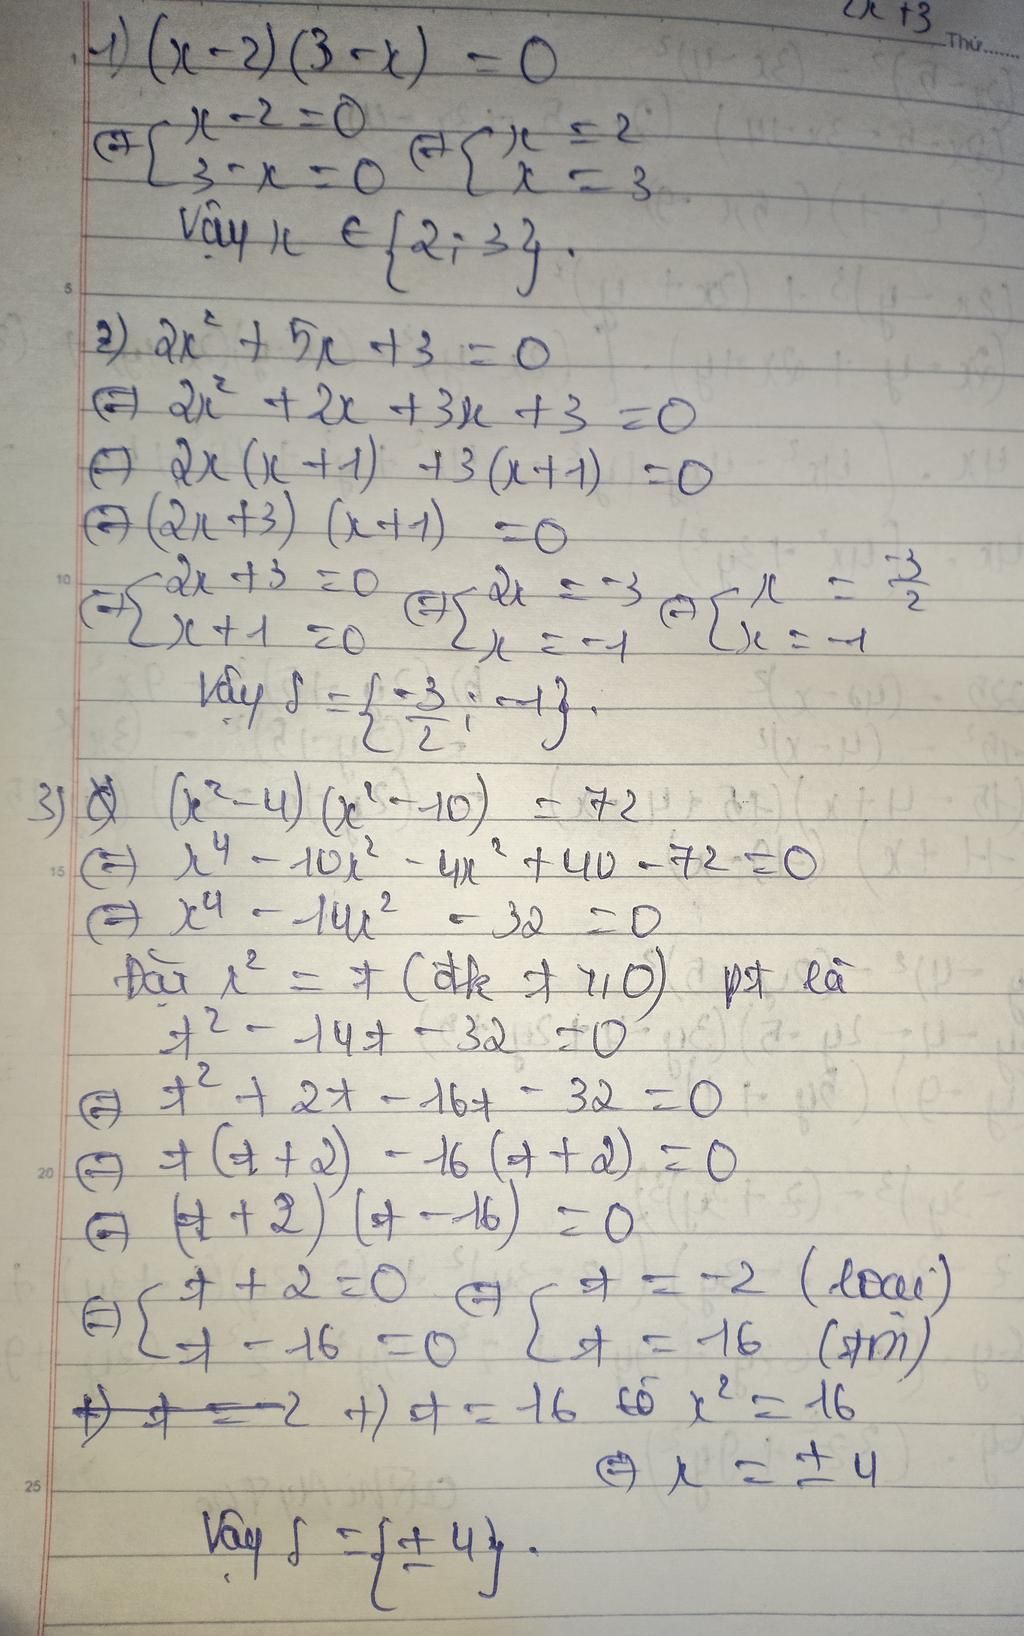 2x + 3
Thứ.......
1) (x - 2)(3 - x) = 0
⇔ { x - 2 = 0 ⇔ { x = 2
3 - x = 0 x = 3
Vậy x ∈ {2; 3}.
5
2) 2x² + 5x + 3 = 0
⇔ 2x² + 2x + 3x + 3 = 0
⇔ 2x(x + 1) + 3(x + 1) = 0
⇔ (2x + 3) (x + 1) = 0
10
⇔ { 2x + 3 = 0 ⇔ { 2x = -3 ⇔ { x = -3/2
x + 1 = 0 x = -1 x = -1
Vậy S = {-3/2; -1}.
3) (x² - 4)(x² - 10) = 72
15
⇔ x⁴ - 10x² - 4x² + 40 - 72 = 0
⇔ x⁴ - 14x² - 32 = 0
Đặt x² = t (đk t ≥ 0) pt là
t² - 14t - 32 = 0
⇔ t² + 2t - 16t - 32 = 0
20
⇔ t(t + 2) - 16(t + 2) = 0
⇔ (t + 2) (t - 16) = 0
⇔ { t + 2 = 0 ⇔ { t = -2 (loại)
t - 16 = 0 t = 16 (tm)
+) t = -2 +) t = 16 có x² = 16
25
⇔ x = ± 4
Vậy S = {± 4}.